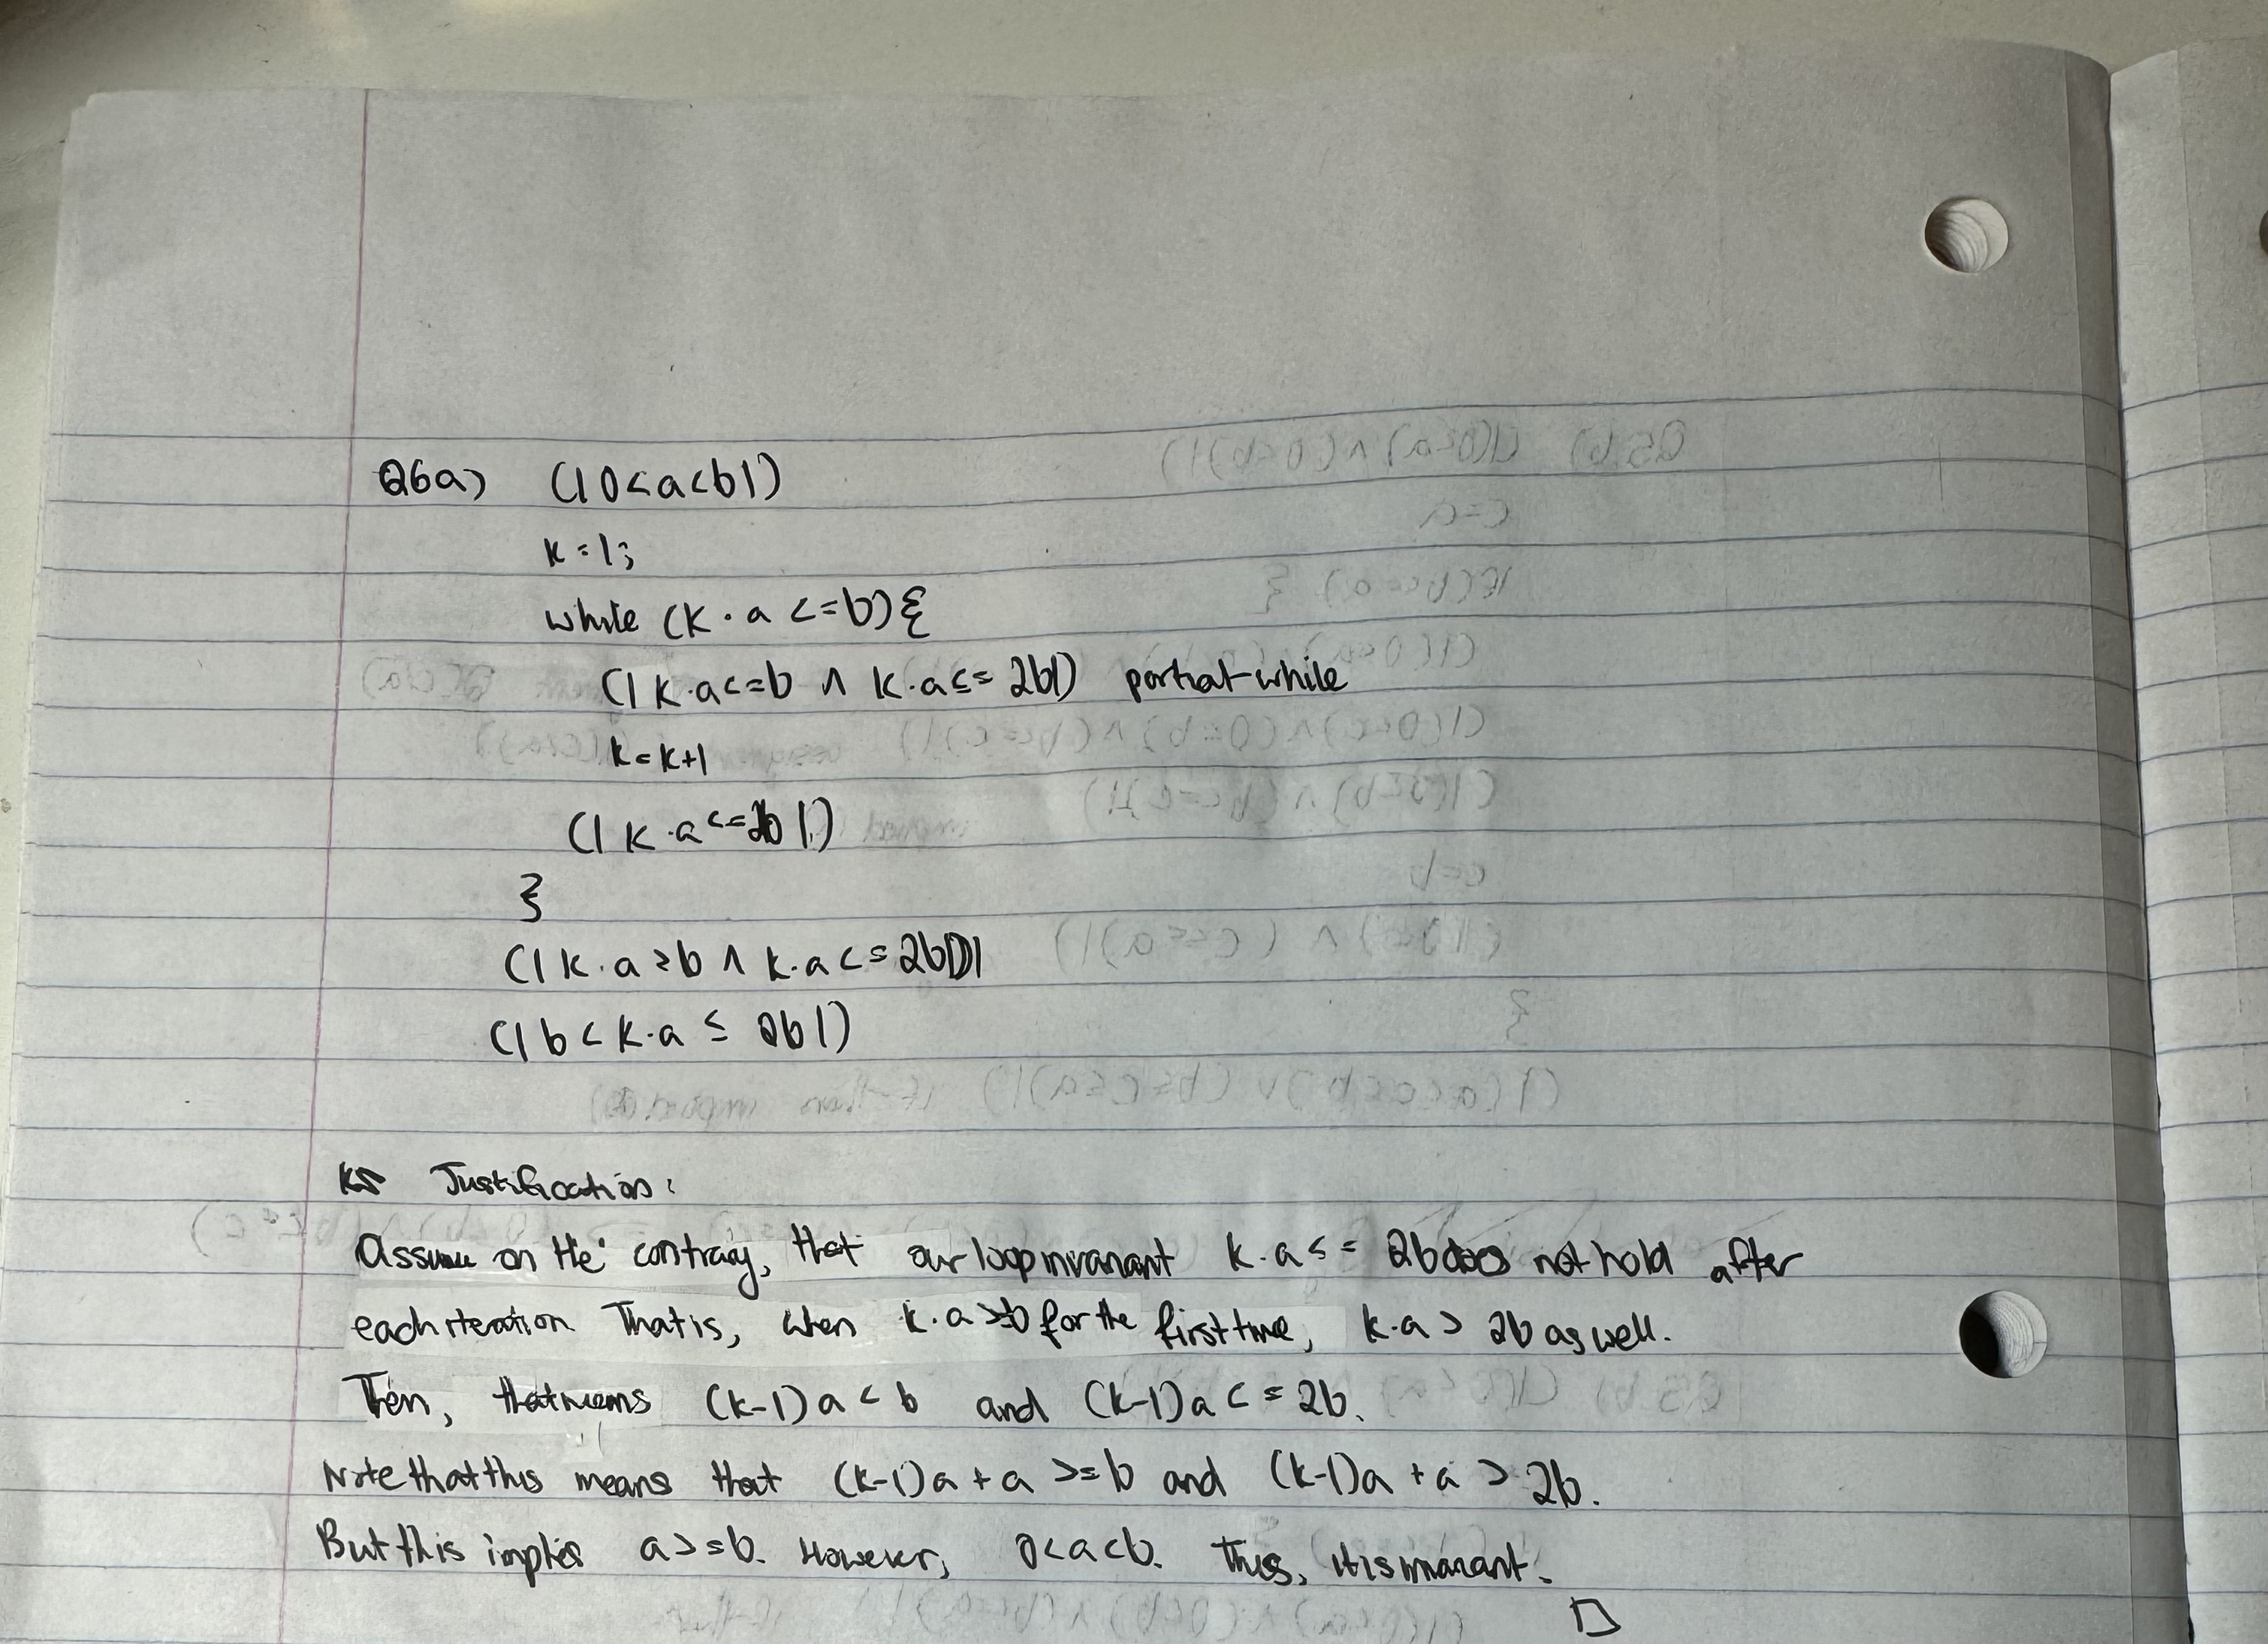 Q6a) (| 0<a<b |)
k=1;
while (k·a <=b){
(| k·a<=b ∧ k·a<= 2b |) partial-while
k=k+1
(| k·a<=2b |)
}
(| k·a>b ∧ k·a<=2b |)
(| b<k·a ≤ 2b |)
Justification:
Assume on the contrary, that our loop invariant k·a<= 2b does not hold after
each iteration. That is, when k·a >b for the first time, k·a > 2b as well.
Then, that means (k-1)a < b and (k-1)a <= 2b.
Note that this means that (k-1)a + a >=b and (k-1)a + a > 2b.
But this implies a>=b. However, 0<a<b. Thus, it is invariant.